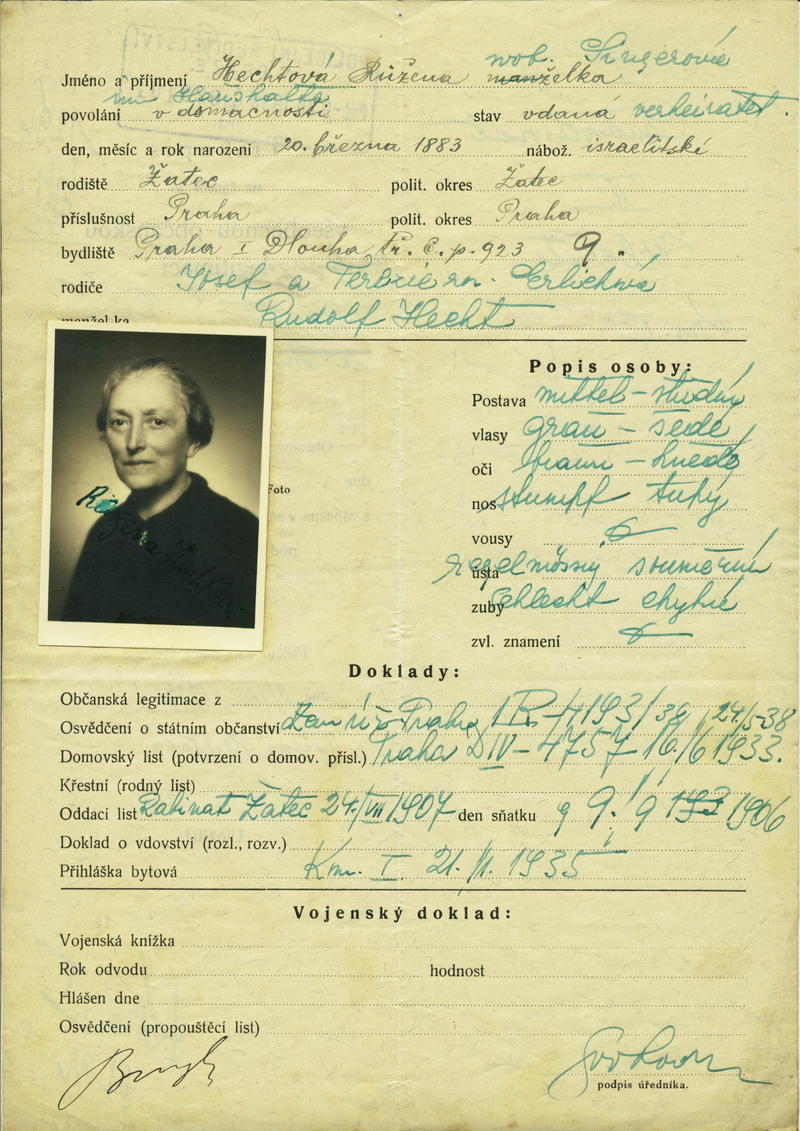 roz. Singerová
Jméno a příjmení Hechtová Růžena manželka
im Haushalte
povolání v domácnosti stav vdaná verheiratet.
den, měsíc a rok narození 20. března 1883 nábož. israelitské
rodiště Žatec polit. okres Žatec
příslušnost Praha polit. okres Praha
bydliště Praha I Dlouhá tř. č. p. 923 9.
rodiče Josef a roz. Erlichová
manžel ka Rudolf Hecht
Popis osoby:
Postava mittel – střední
vlasy grau – šedé
oči braun – hnědé
Foto
nos stumpf tupý
vousy
ústa regelmässig souměrná
zuby schlecht chybné
zvl. znamení
Růžena Hechtová
Doklady:
Občanská legitimace z
Osvědčení o státním občanství Zem. úř. v Praze 1R-4193/38 24/5-38
Domovský list (potvrzení o domov. přísl.) Praha DIV-4757-16/6 1933.
Křestní (rodný list)
Oddací list Rabinát Žatec 24/VII 1907 den sňatku 9/9 1906
Doklad o vdovství (rozl., rozv.)
Přihláška bytová Kom. I. 21./1. 1935
Vojenský doklad:
Vojenská knížka
Rok odvodu hodnost
Hlášen dne
Osvědčení (propouštěcí list)
podpis úředníka.